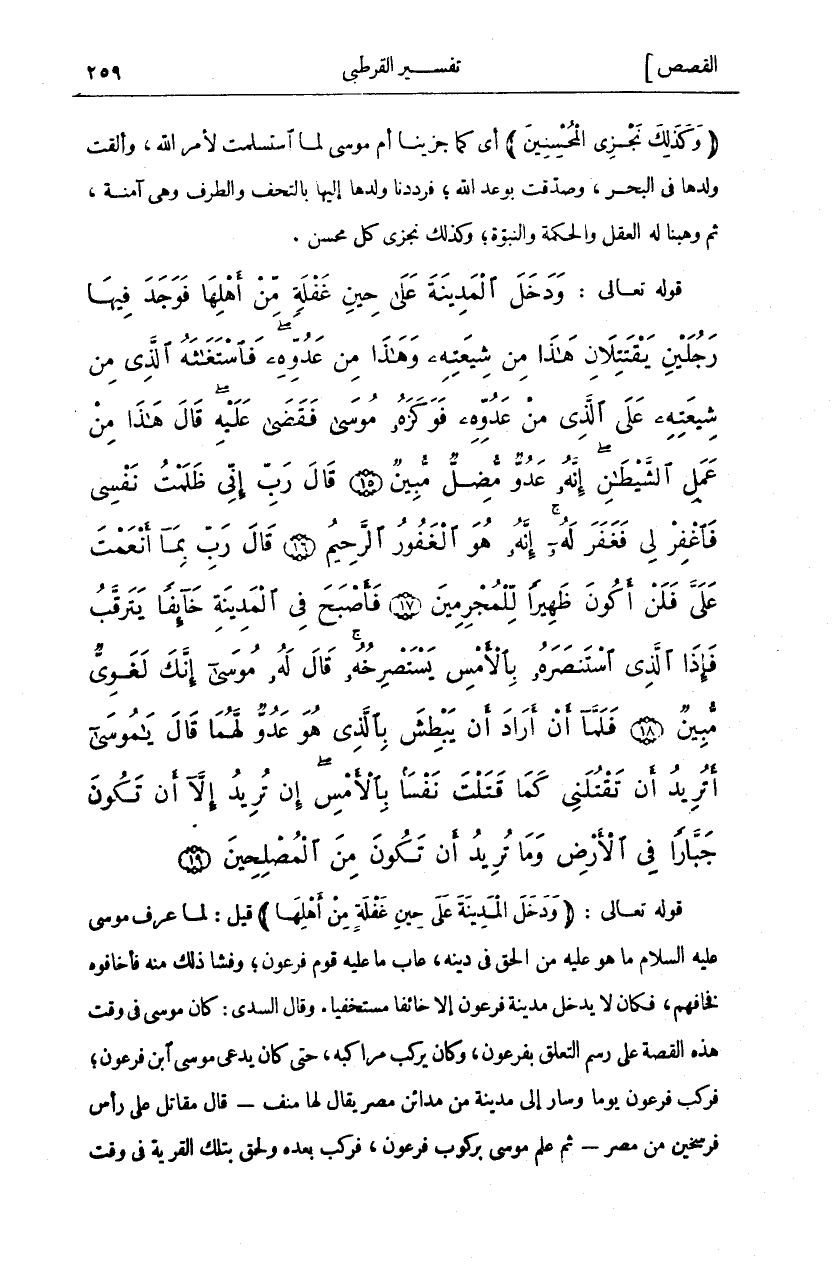 القصص] تفسير القرطبى ٢٥٩
﴿وَكَذَلِكَ نَجْزِى الْمُحْسِنِينَ﴾ أى كما جزينا أم موسى لما ٱستسلمت لأمر الله ، وألقت
ولدها فى البحر ، وصدّقت بوعد الله ؛ فرددنا ولدها إليها بالتحف والطرف وهى آمنة ،
ثم وهبنا له العقل والحكمة والنبوّة؛ وكذلك نجزى كل محسن .
قوله تعالى : وَدَخَلَ ٱلْمَدِينَةَ عَلَىٰ حِينِ غَفْلَةٍ مِّنْ أَهْلِهَا فَوَجَدَ فِيهَا
رَجُلَيْنِ يَقْتَتِلَانِ هَٰذَا مِن شِيعَتِهِۦ وَهَٰذَا مِنْ عَدُوِّهِۦۖ فَٱسْتَغَٰثَهُ ٱلَّذِى مِن
شِيعَتِهِۦ عَلَى ٱلَّذِى مِنْ عَدُوِّهِۦ فَوَكَزَهُۥ مُوسَىٰ فَقَضَىٰ عَلَيْهِۖ قَالَ هَٰذَا مِنْ
عَمَلِ ٱلشَّيْطَٰنِۖ إِنَّهُۥ عَدُوٌّ مُّضِلٌّ مُّبِينٌ ۝١٥ قَالَ رَبِّ إِنِّى ظَلَمْتُ نَفْسِى
فَٱغْفِرْ لِى فَغَفَرَ لَهُۥٓۚ إِنَّهُۥ هُوَ ٱلْغَفُورُ ٱلرَّحِيمُ ۝١٦ قَالَ رَبِّ بِمَآ أَنْعَمْتَ
عَلَىَّ فَلَنْ أَكُونَ ظَهِيرًا لِّلْمُجْرِمِينَ ۝١٧ فَأَصْبَحَ فِى ٱلْمَدِينَةِ خَآئِفًا يَتَرَقَّبُ
فَإِذَا ٱلَّذِى ٱسْتَنصَرَهُۥ بِٱلْأَمْسِ يَسْتَصْرِخُهُۥۚ قَالَ لَهُۥ مُوسَىٰٓ إِنَّكَ لَغَوِىٌّ
مُّبِينٌ ۝١٨ فَلَمَّآ أَنْ أَرَادَ أَن يَبْطِشَ بِٱلَّذِى هُوَ عَدُوٌّ لَّهُمَا قَالَ يَٰمُوسَىٰٓ
أَتُرِيدُ أَن تَقْتُلَنِى كَمَا قَتَلْتَ نَفْسًۢا بِٱلْأَمْسِۖ إِن تُرِيدُ إِلَّآ أَن تَكُونَ
جَبَّارًا فِى ٱلْأَرْضِ وَمَا تُرِيدُ أَن تَكُونَ مِنَ ٱلْمُصْلِحِينَ ۝١٩
قوله تعالى : ﴿وَدَخَلَ الْمَدِينَةَ عَلَى حِينِ غَفْلَةٍ مِنْ أَهْلِهَا﴾ قيل : لما عرف موسى
عليه السلام ما هو عليه من الحق فى دينه، عاب ما عليه قوم فرعون؛ وفشا ذلك منه فأخافوه
فخافهم، فكان لا يدخل مدينة فرعون إلا خائفا مستخفيا. وقال السدى : كان موسى فى وقت
هذه القصة على رسم التعلق بفرعون، وكان يركب مراكبه، حتى كان يدعى موسى ٱبن فرعون؛
فركب فرعون يوما وسار إلى مدينة من مدائن مصر يقال لها منف — قال مقاتل على رأس
فرسخين من مصر — ثم علم موسى بركوب فرعون ، فركب بعده ولحق بتلك القرية فى وقت